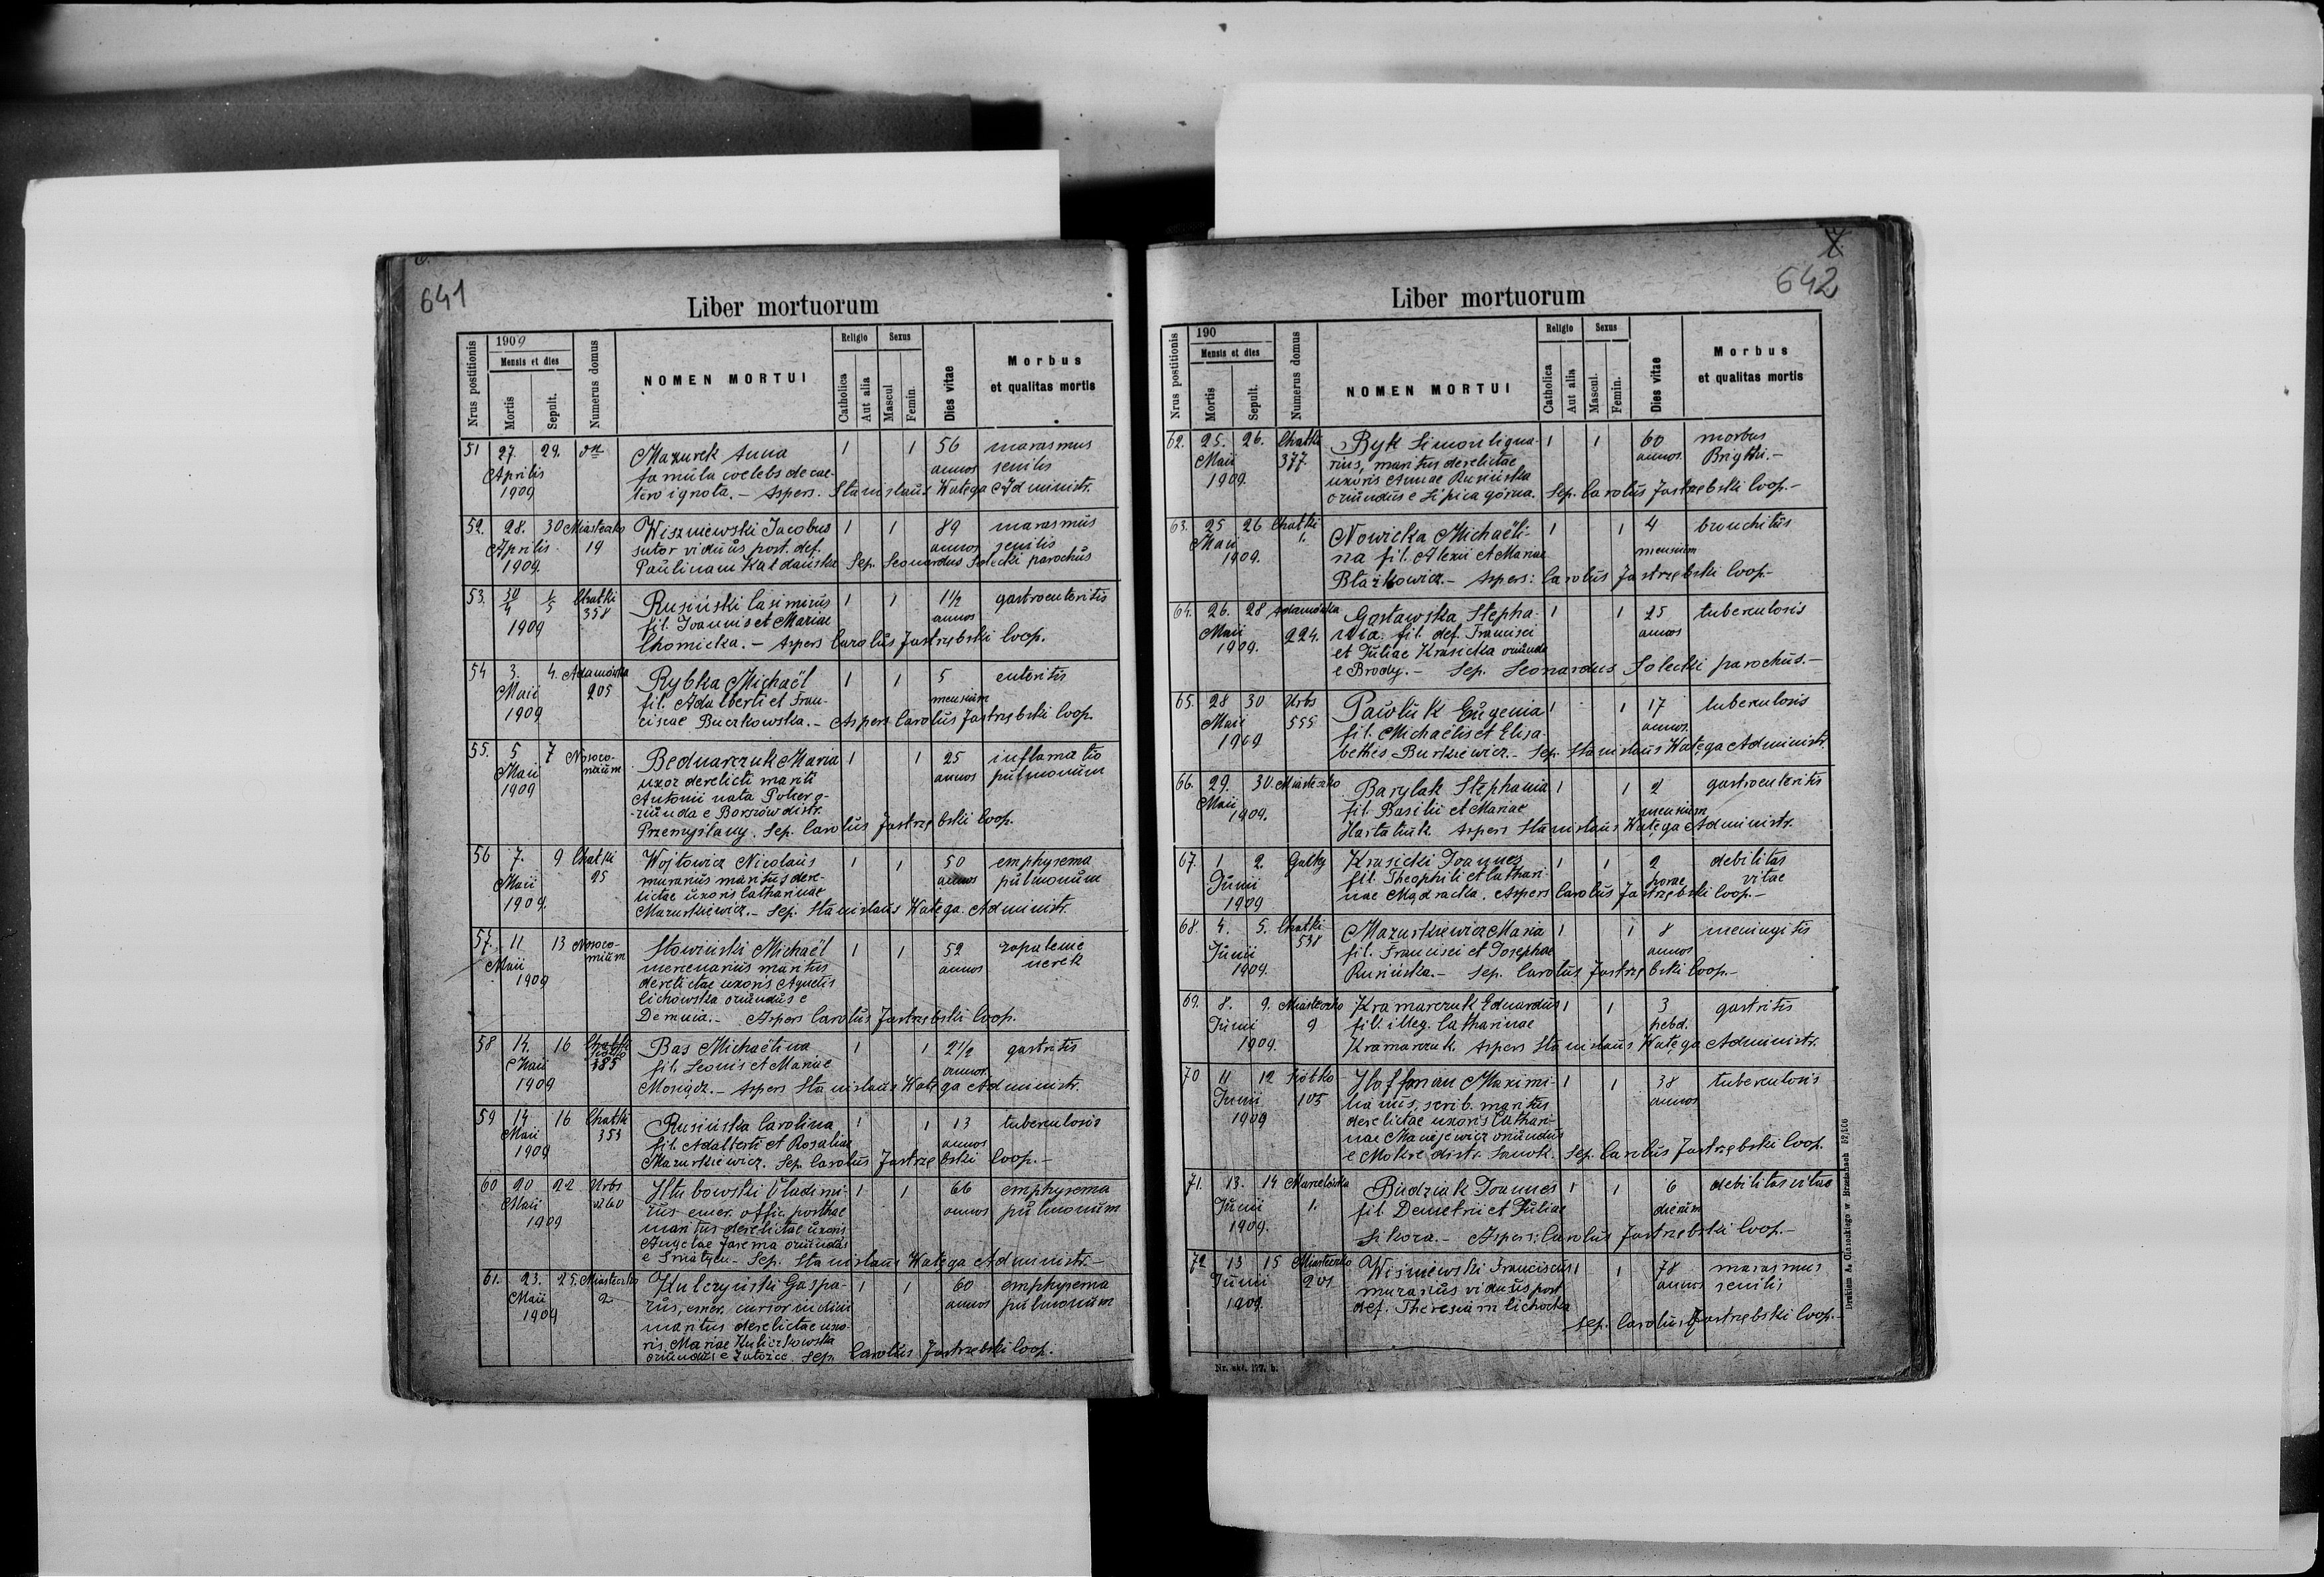 641
Liber mortuorum
Nrus postitionis
1909
Mensis et dies
Mortis
Sepult.
Numerus domus
NOMEN MORTUI
Religio
Catholica
Aut alia
Sexus
Mascul
Femin.
Dies vitae
Morbus
et qualitas mortis
51 27. 29. Mazurek Anna 1 1 56 marasmus
Aprilis famula coelebs de cae- annos senilis
1909 tero ignota. – Aspers. Stanislaus Watęga Administr.
52. 28. 30 Miasteczko Wiszniewski Jacobus 1 1 89 marasmus
Aprilis 19 sutor viduus post. def. annos senilis
1909. Paulinam Kaldańska Sep. Leonardus Solecki parochus
53. 30/4 1/5 Chatki Rusiński Casimirus 1 1 1½ gastroenteritis
358 fil. Joannis et Mariae annos
1909 Chomicka. – Aspers Carolus Jastrzębski Coop.
54 3. 4. Adamówka Rybka Michaël 1 1 5 enteritis
Maii 205 fil. Adalberti et Fran- mensium
1909 ciscae Buczkowska. – Aspers Carolus Jastrzębski Coop.
55. 5 7 Nosoco- Bednarczuk Maria 1 1 25 inflamatio
Maii mium uxor derelicti mariti annos pulmonum
1909 Antonii nata Poher o-
riunda e Borszów distr.
Przemyślany. Sep. Carolus Jastrzębski Coop.
56 7. 9 Chatki Wojtowicz Nicolaus 1 1 50 emphysema
Maii 25 murarius maritus dere- annos pulmonum
1909. lictae uxoris Catharinae
Mazurkiewicz. – Sep. Stanislaus Watęga. Administr.
57. 11 13 Nosoco- Słowiński Michaël 1 1 52 zapalenie
Maii mium mercenarius maritus annos nerek
1909 derelictae uxoris Agnetis
Cichowska oriundus e
Demnia. – Aspers Carolus Jastrzębski Coop.
58 14. 16 Bas Michaëlina 1 1 2½ gastritis
Maii 385 fil. Leonis et Mariae annos
1909 Monącz. – Aspers Stanislaus Watęga Administr.
59 14 16 Chatki Rusińska Carolina 1 1 13 tuberculosis
Maii 353 fil. Adalberti et Rosaliae annos
1909 Mazurkiewicz. Sep. Carolus Jastrzębski Coop. –
60 20 22 Urbs Hłubowski Vladimi- 1 1 66 emphysema
Maii 260 rus emer. offic. posthae annos pulmonum
1909 maritus derelictae uxoris
Angelae Jarema oriundus
e Śniatyn – Sep. Stanislaus Watęga Administr. –
61. 23. 25. Miasteczko Kulczyński Gaspa- 1 1 60 emphysema
Maii 2 rus, emer. cursor annos pulmonum
1909 maritus derelictae uxo-
ris Mariae Kuliczkowska
oriundus e Załoźce. Sep. Carolus Jastrzębski Coop.
642
Liber mortuorum
Nrus postitionis
190
Mensis et dies
Mortis
Sepult.
Numerus domus
NOMEN MORTUI
Religio
Catholica
Aut alia
Sexus
Mascul.
Femin.
Dies vitae
Morbus
et qualitas mortis
62. 25. 26. Chatki Byk Simon ligna- 1 1 60 morbus
Maii 377. rius, maritus derelictae annos. Brighti. –
1909. uxoris Annae Rusińska
oriundus e Lipica górna. Sep. Carolus Jastrzębski Coop. –
63. 25 26 Chatki Nowicka Michaëli- 1 1 4 bronchitis
Maii 1. na fil. Alexii et Mariae mensium
1909.
Błażkowicz. – Aspers: Carolus Jastrzębski Coop –
64. 26. 28 Adamówka Gąstawska Stepha- 1 1 25 tuberculosis
Maii 224. nia fil. def. Francisci annos
1909. et Juliae Krasicka oriunda
e Brody. – Sep. Leonardus Solecki parochus. –
65. 28 30 Urbs Pawluk Eugenia 1 1 17 tuberculosis
Maii 555 fil. Michaëlis et Elisa- annos.
1909 bethis Burkiewicz. – Sep. Stanislaus Watęga Administr.
66. 29. 30. Miasteczko Barylak Stephania 1 1 2 gastroenteritis
Maii fil. Basilii et Mariae mensium
1909. Hartatiuk Aspers Stanislaus Watęga Administr.
67. 1 2. Krasicki Joannes 1 1 2 debilitas
Junii fil. Theophili et Cathari- horae vitae
1909 nae Mądracka. Aspers Carolus Jastrzębski Coop –
68 4. 5. Chatki Mazurkiewicz Maria 1 1 8 meningitis
Junii 538 fil. Francisci et Josephae annos
1909. Rusińska. – Sep. Carolus Jastrzębski Coop. –
69. 8. 9. Miasteczko Kramarczuk Eduardus 1 1 3 gastritis
Junii 9 fil. illeg. Catharinae hebd.
1909. Kramarczuk. Aspers Stanislaus Watęga Administr.
70 11 12 Siółko Haffman Maximi- 1 1 38 tuberculosis
Junii 105 lianus, scrib. maritus annos
1909 derelictae uxoris Cathari-
nae Maciejewicz oriundus
e Mokre distr. Sanok. Sep. Carolus Jastrzębski Coop.
71. 13. 14 Marcelówka Budziak Joannes 1 1 6 debilitas vitae
Junii 1. fil. Demetrii et Juliae dierum
1909. Sikora. – Aspers: Carolus Jastrzębski Coop. –
72 13 15 Miasteczko Wiśniewski Franciscus 1 1 78 marasmus
Junii 201 murarius viduus post annos senilis
1909. def. Theresiam Cichocka
Sep. Carolus Jastrzębski Coop. –
Nr. skł. 177. b.
Drukiem A. Olanskiego w Brzeżanach 52,106